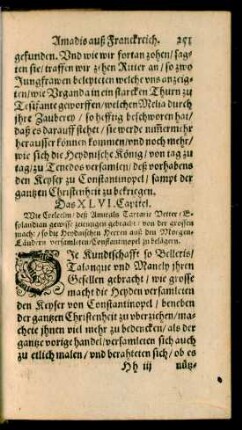 Amadis auß Franckreich. 251
gefunden. Vnd wie wir fortan zohen/ sag-
ten sie/ traffen wir zehen Ritter an/ so zwo
Jungfrawen beleyteten welche vns anzeig-
ten/ wie Vrganda in ein starcken Thurn zu
Tesifante geworffen/ welchen Melia durch
ihre Zauberey / so hefftig beschworen hat/
daß es darauff stehet/ sie werde nim̃ermehr
herausser können kommen/ vnd noch mehr/
wie sich die Heydnische König/ von tag zu
tag/ zu Tenedos versamlen/ deß vorhabens
den Keyser zu Constantinopel / sampt der
gantzen Christenheit zu bekriegen.
Das XLVI. Capitel.
Wie Vetter / E-
splandian gewisse zeitungen gebracht/ von der grossen
macht/ so die Heydnischen Herren auß den Morgen-
Ländern versamleten/ Constantinopel zu belägern.
DIe Kundtschafft so Belleris/
Talanque vnd Manely ihren
Gesellen gebracht / wie grosse
macht die Heyden versamleten
den Keyser von Constantinopel / beneben
der gantzen Christenheit zu vberziehen/ ma-
chete ihnen viel mehr zu bedencken/ als der
gantze vorige handel/ versamleten sich auch
zu etlich malen/ vnd berahteten sich/ ob es
Hh iij nütz-